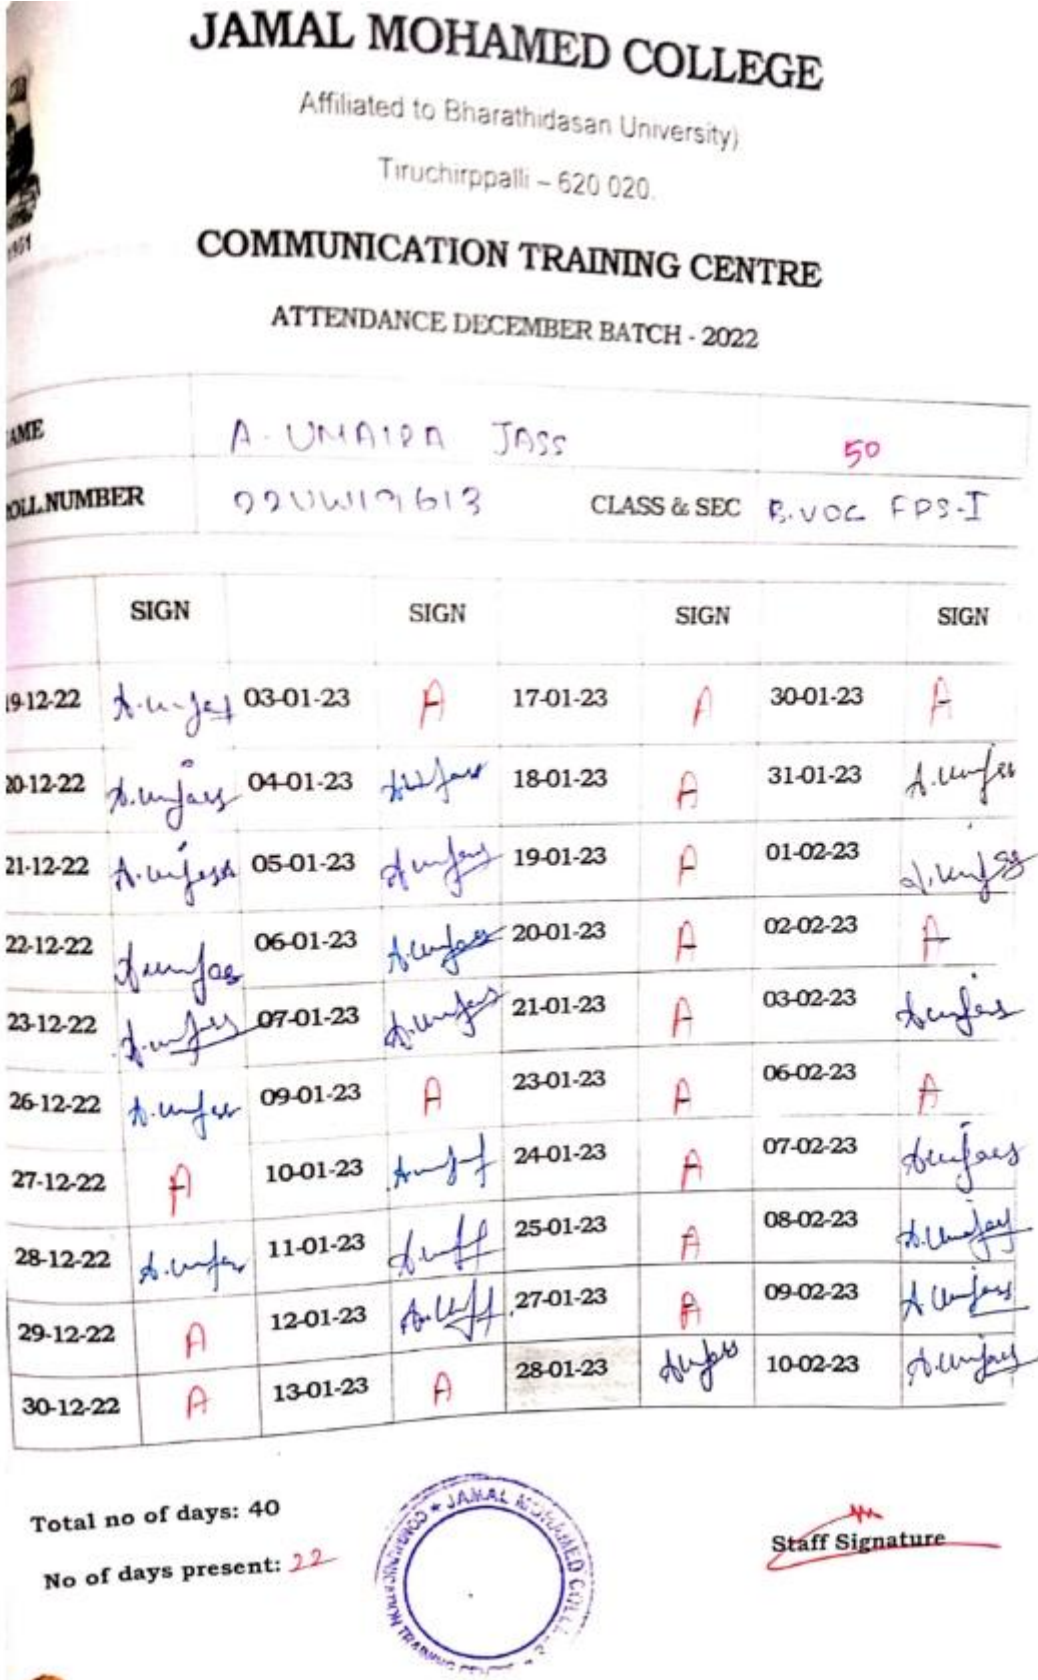 JAMAL MOHAMED COLLEGE
Affiliated to Bharathidasan University)
Tiruchirppalli – 620 020.
1951
COMMUNICATION TRAINING CENTRE
ATTENDANCE DECEMBER BATCH - 2022
AME A. UMAIRA JASS 50
OLL NUMBER 22UW19613 CLASS & SEC B.VOC FPS-I
SIGN SIGN SIGN SIGN
19-12-22 03-01-23 A 17-01-23 A 30-01-23 A
20-12-22 04-01-23 18-01-23 A 31-01-23
21-12-22 05-01-23 19-01-23 A 01-02-23
22-12-22 06-01-23 20-01-23 A 02-02-23 A
23-12-22 07-01-23 21-01-23 A 03-02-23
26-12-22 09-01-23 A 23-01-23 A 06-02-23 A
27-12-22 A 10-01-23 24-01-23 A 07-02-23
28-12-22 11-01-23 25-01-23 A 08-02-23
29-12-22 A 12-01-23 27-01-23 A 09-02-23
30-12-22 A 13-01-23 A 28-01-23 10-02-23
Total no of days: 40
No of days present: 22
JAMAL MOHAMED COLLE
COMMUNICATION TRAINING
Staff Signature